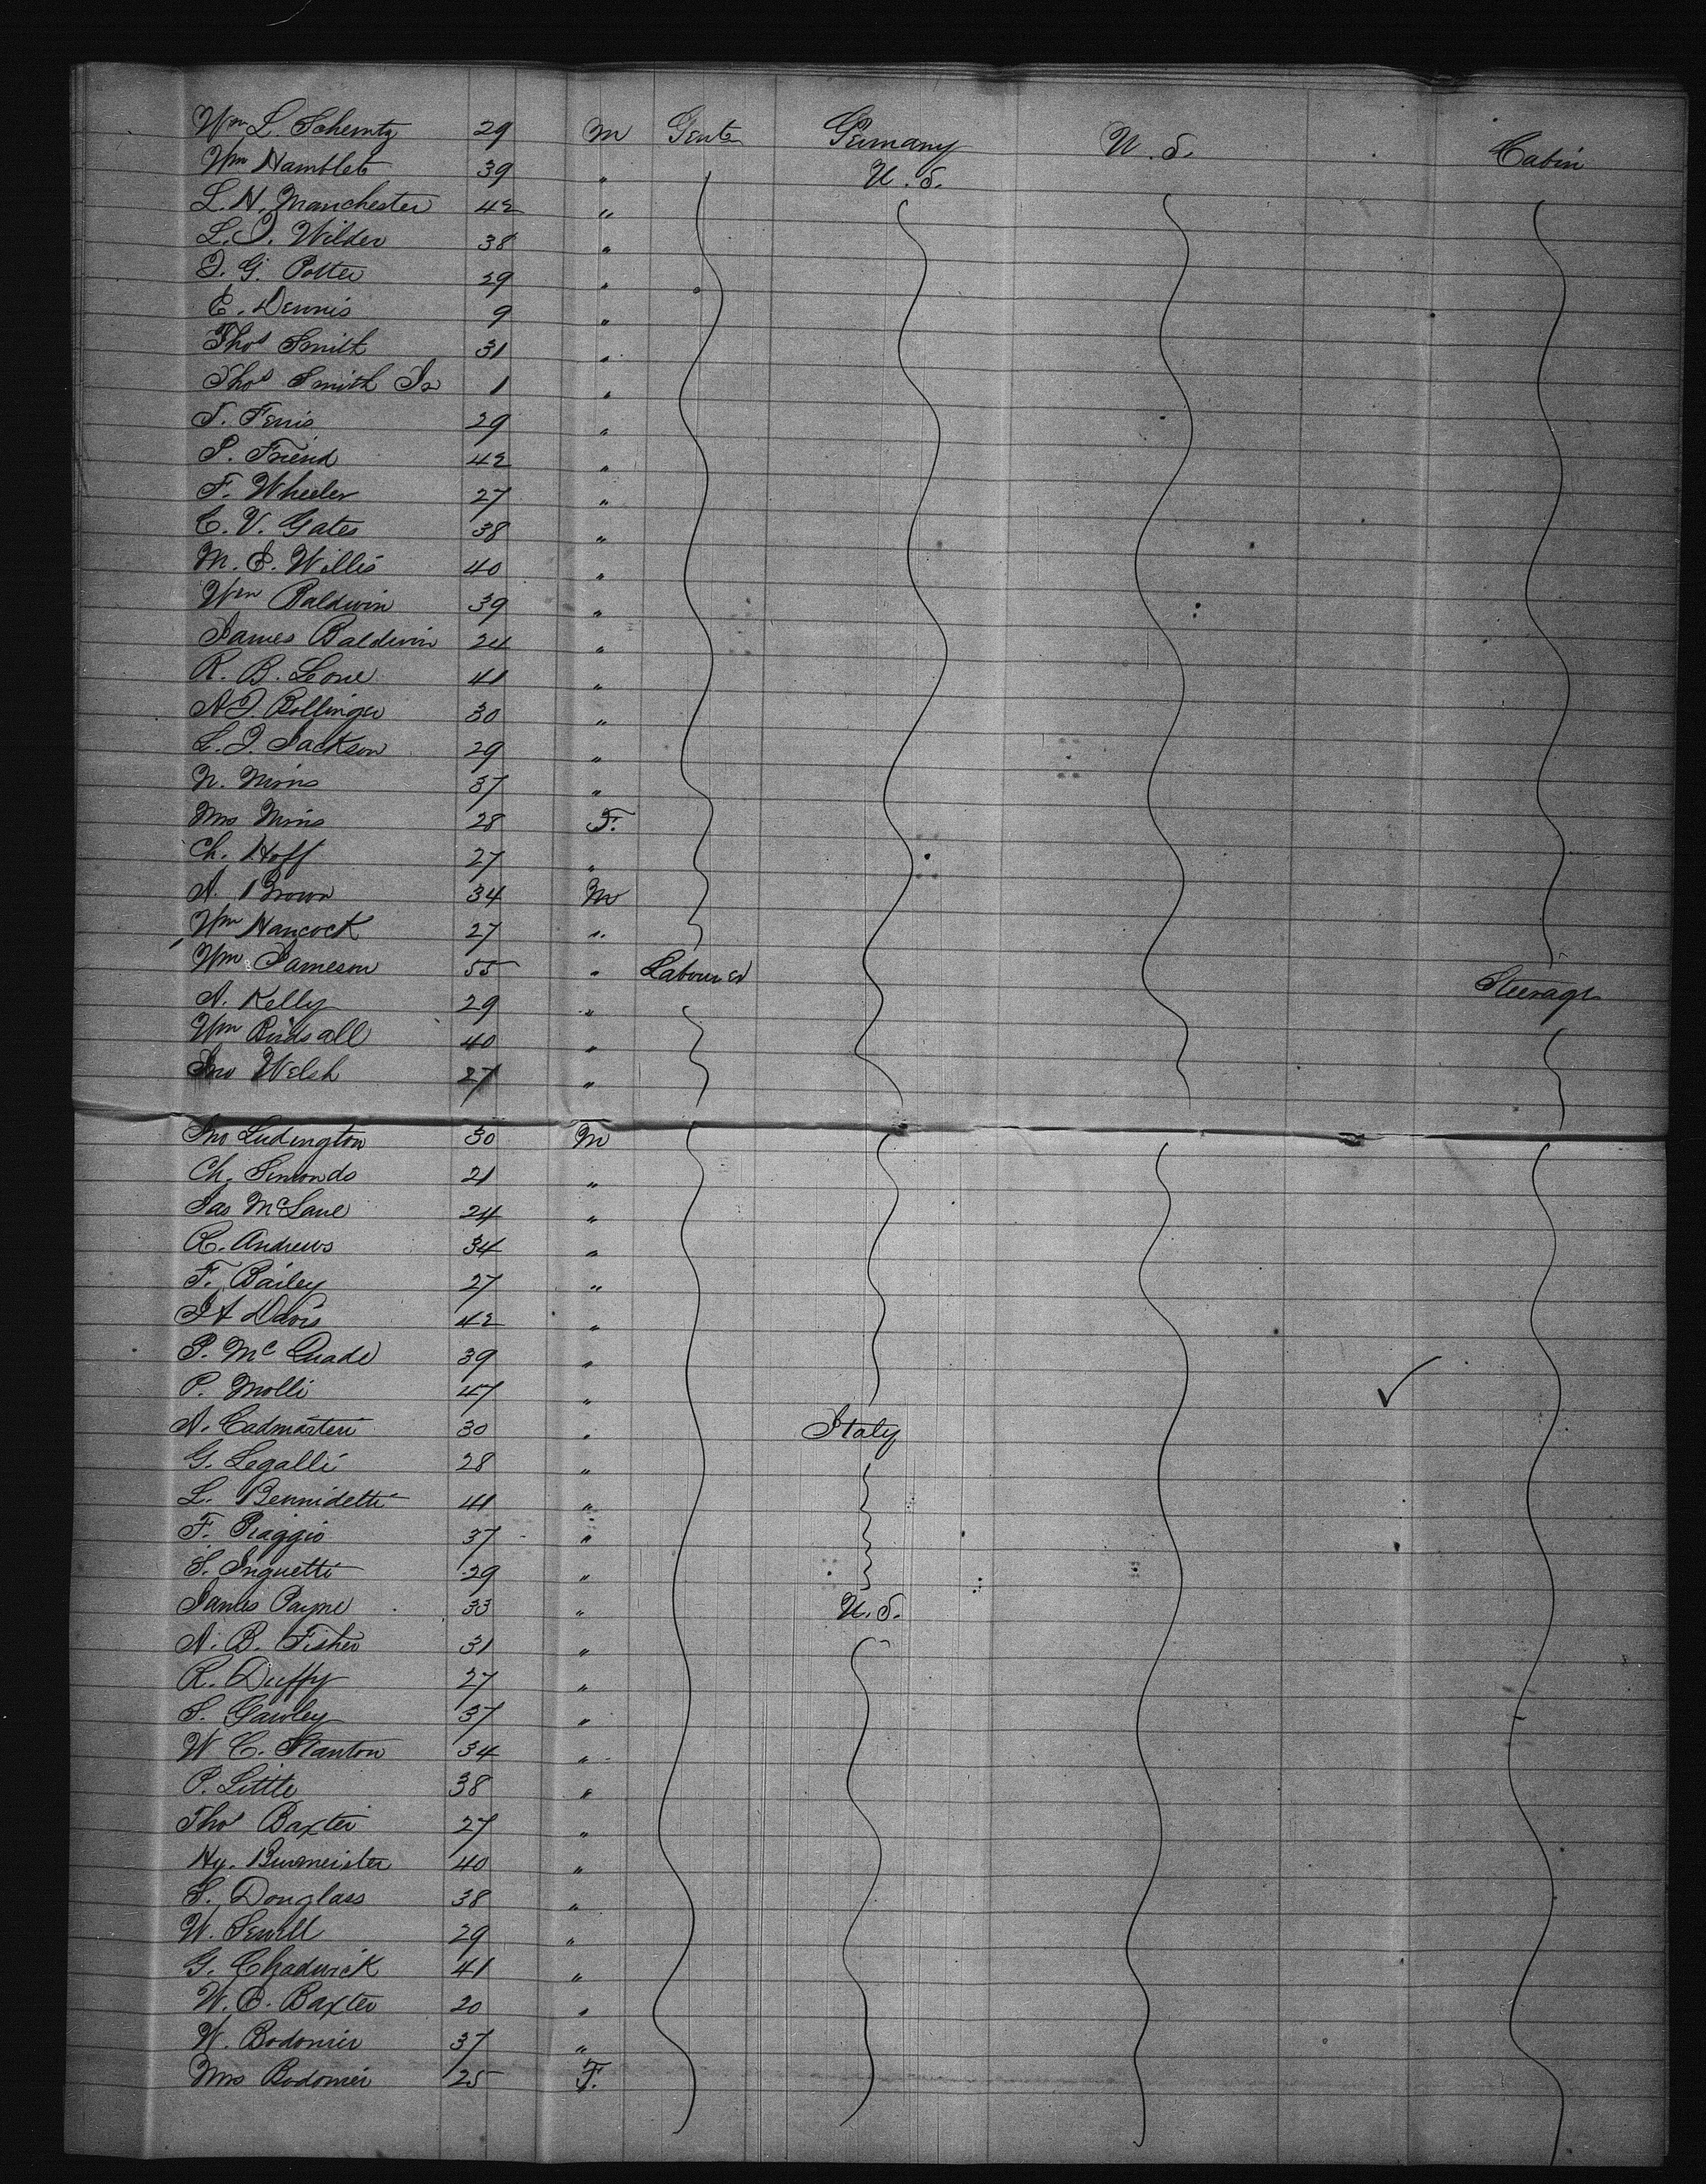 Wm L. Schemtz 29 M Gents Germany U. S. Cabin
Wm Hamblet 39 " U. S.
L. H. Manchester 42 "
L. J. Wilder 38 "
J. G. Potter 29 "
E. Dennis 9 "
Thos Smith 31 "
Thos Smith Jr 1 "
T. Ferris 29 "
P. Friend 42 "
F. Wheeler 27 "
C. V. Gates 38 "
M. E. Willis 40 "
Wm Baldwin 39 "
James Baldwin 24 "
R. B. Leone 41 "
A J. Bollinger 30 "
L. J. Jackson 29 "
N. Mims 37 "
Mrs Mims 28 F.
Ch. Hoff 27 "
A. Brown 34 M
Wm Hancock 27 "
Wm Jameson 55 " Labourer Steerage
A. Kelly 29 "
Wm Birdsall 40 "
Jno Welsh 27 "
Jno Ludington 30 M
Ch. Simonds 21 "
Jas McLane 24 "
R. Andrews 34 "
F. Bailey 27 "
J A Davis 42 "
P. Mc Quade 39 "
P. Molli 47 "
A. Cadmarteri 30 " Italy
G. Legalli 28 "
L. Bennidetti 41 "
F. Piaggio 37 "
S. Inguetti 29 "
James Payne 33 " U. S.
A. B. Fisher 31 "
R. Duffy 27 "
S. Gawley 37 "
W C. Stanton 34 "
P. Little 38 "
Thos Baxter 27 "
Hy. Burmeister 40 "
S. Douglass 38 "
W. Sewell 29 "
G. Chadwick 41 "
W. C. Baxter 20 "
W. Bodomier 37 "
Mrs Bodomier 25 F.